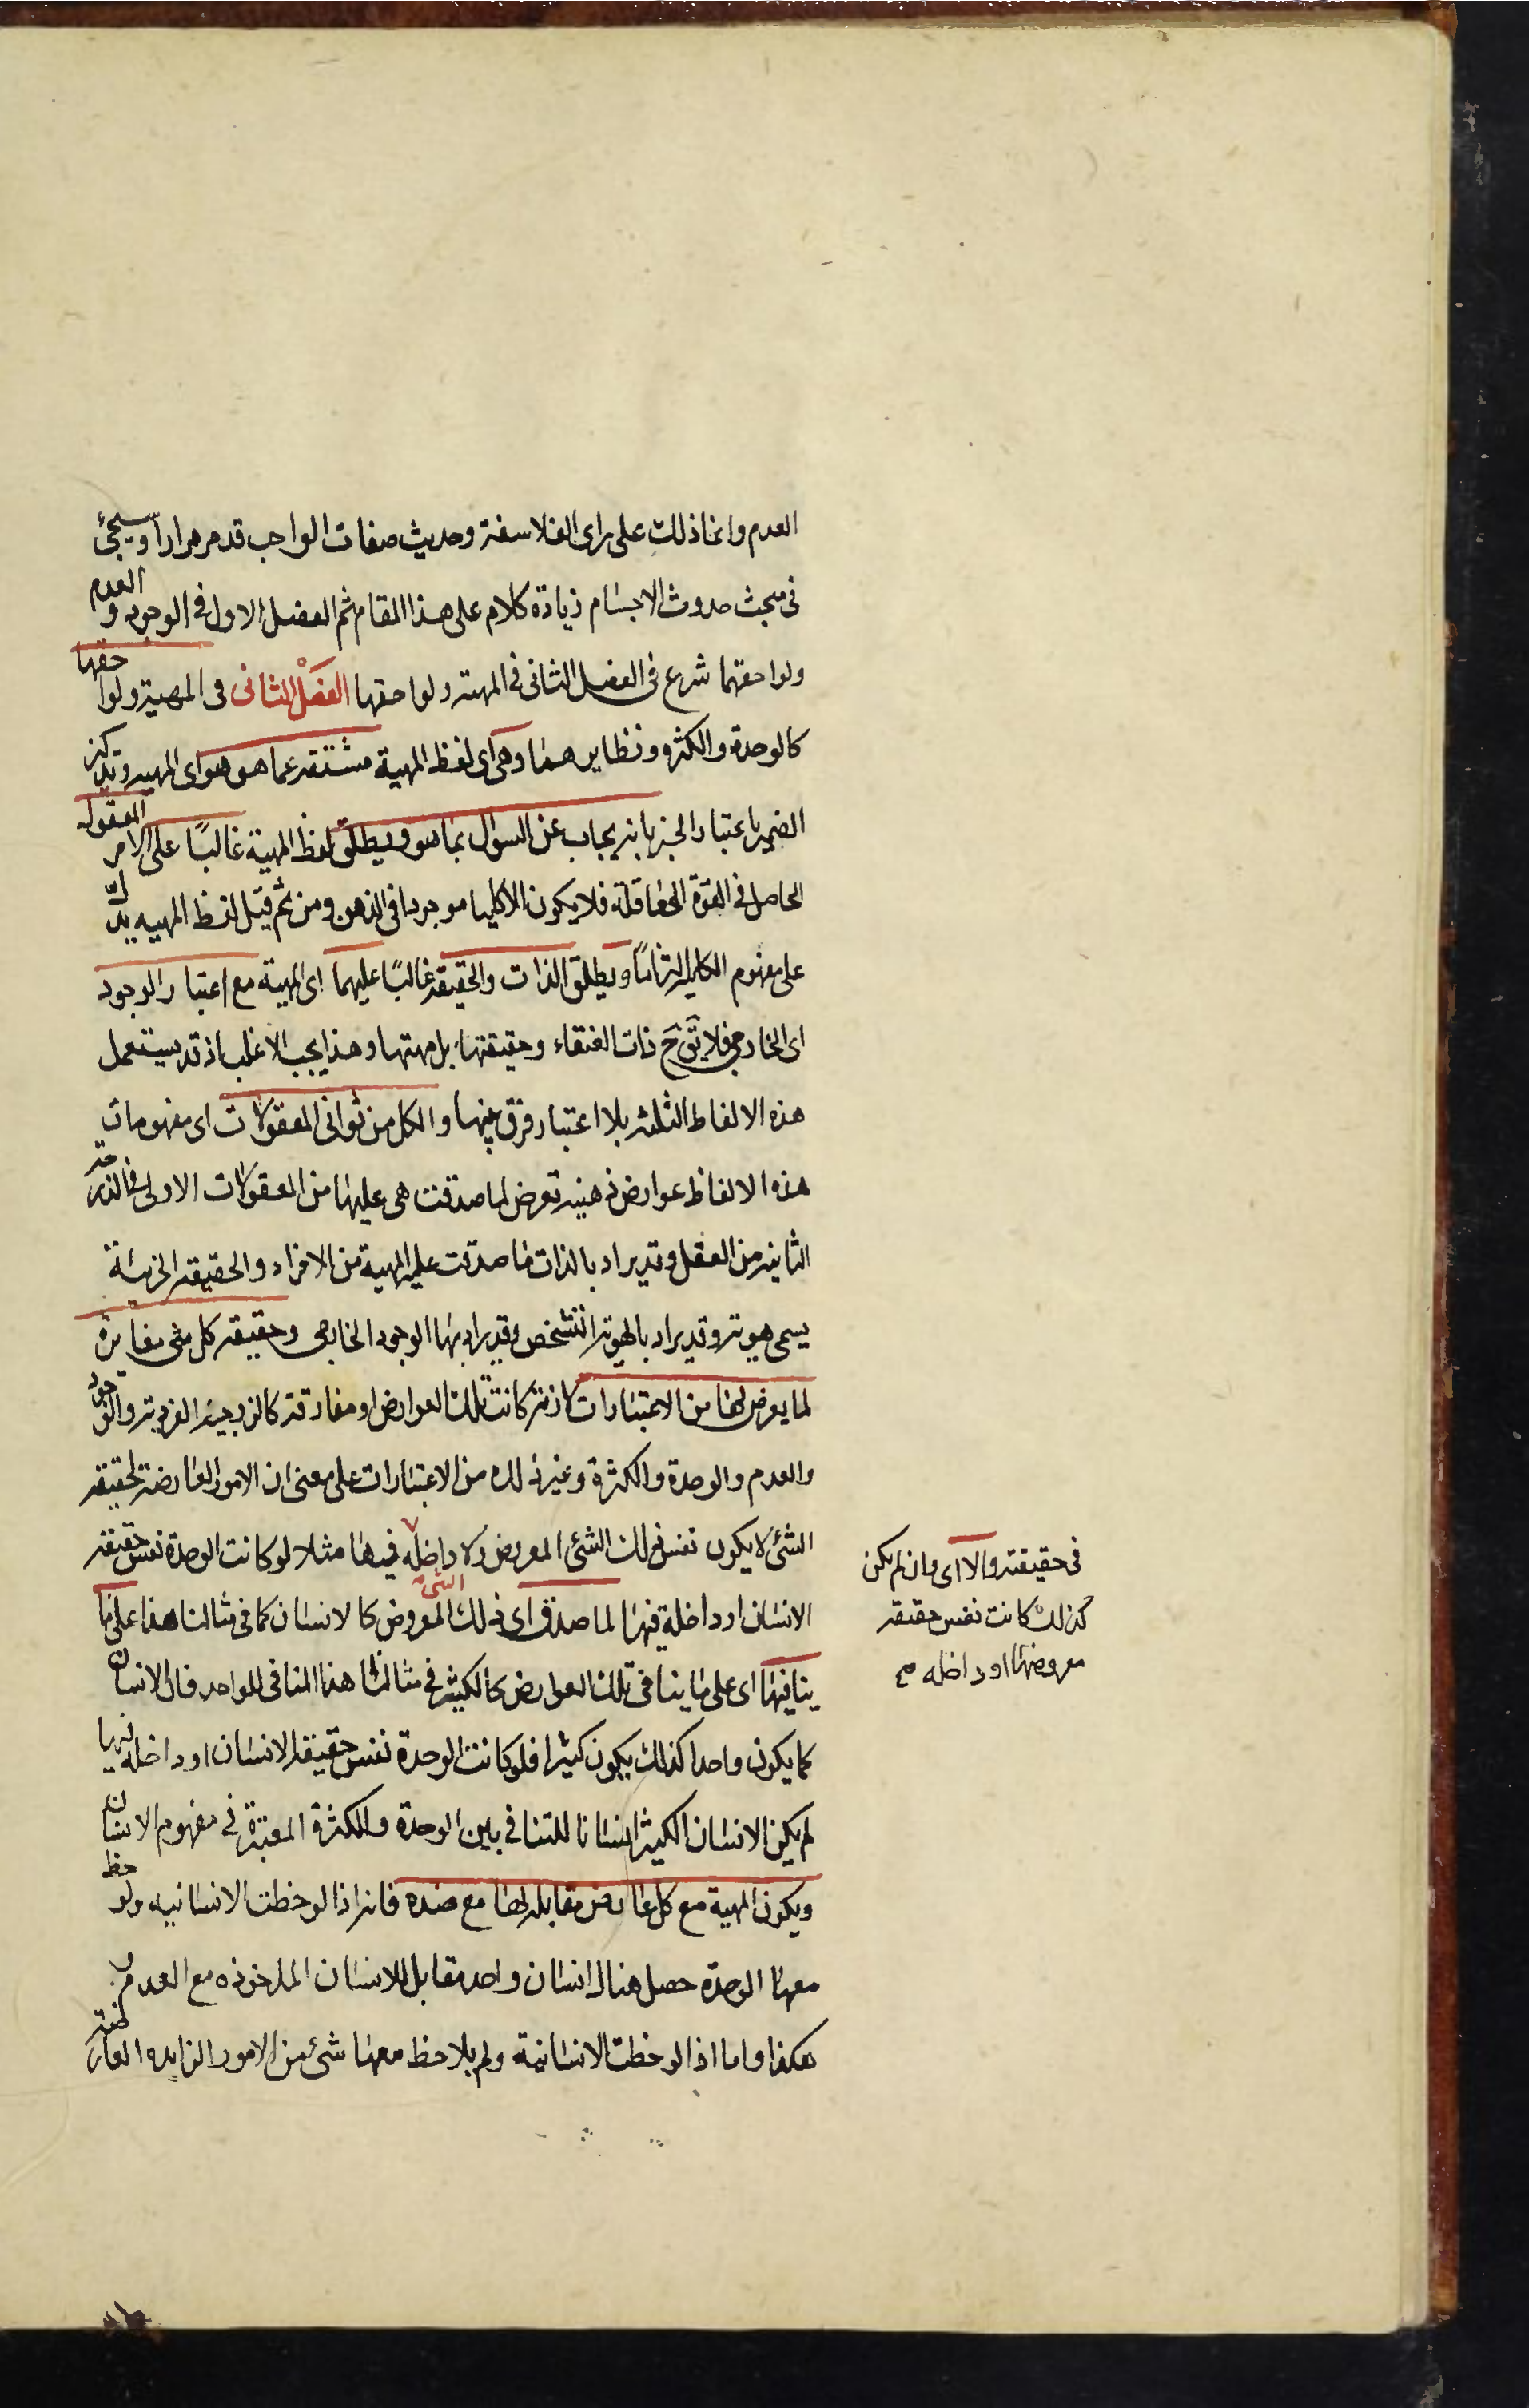 العدم وانما ذلك على راى الفلاسفة وحديث صفات الواجب قد مر مرارا وسيجئ
فى مبحث حدوث الاجسام زيادة كلام على هذا المقام ثم الفصل الاول فى الوجود والعدم
ولواحقهما شرع فى الفصل الثانى فى المهية ولواحقها الفصل الثانى فى المهية ولواحقها
كالوحدة والكثرة ونظايرهما وهى اى لفظ المهية مشتقة عما هو هو اى المهية وتذكير
الضمير باعتبار الخبر بانه يجاب عن السوال بما هو ويطلق لفظ المهية غالبًا على الامر المعقول
الحاصل فى القوة العاقلة فلا يكون الا كليا موجودا فى الذهن ومن ثم قيل لفظ المهيه يدلّ
على مفهوم الكلى التزامًا ويطلق الذات والحقيقة غالبًا عليهما اى المهية مع اعتبار الوجود
اى الخارجى فلا تق ح ذات العنقاء وحقيقتها بل مهيتها وهذا بحسب الاغلب اذ قد يستعمل
هذه الالفاظ الثلثه بلا اعتبار فرق بينها والكل من ثوانى المعقولات اى مفهومات
هذه الالفاظ عوارض ذهنيه تعرض لما صدقت هى عليها من المعقولات الاولى فى الدرجة
الثانيه من العقل وقد يراد بالذات ما صدقت عليه المهية من الافراد والحقيقة الجزئية
يسمى هوية وقد يراد بالهوية التشخص وقد يراد بها الوجود الخارجى وحقيقه كل شى مغايرة
لما يعرض لها من الاعتبارات لازمة كانت تلك العوارض او مفارقة كالزوجية الفردية والوجود
والعدم والوحدة والكثرة وغير ذلك من الاعتبارات على معنى ان الامور العارضة لحقيقة
الشئ لا يكون نفس ذلك الشئ المعروض ولا داخله فيها مثلا لو كانت الوحدة نفس حقيقة
فى حقيقته والا اى وان لم يكن
كذلك كانت نفس حقيقة
معروضها او داخله صح
الانسان او داخلة فيها لما صدق اى ذلك الشئ المعروض كالانسان كما فى مثالنا هذا على ما
ينافيها اى على ما ينافى تلك العوارض كالكثير فى مثالنا هذا المنافى للواحد فان الانسان
كما يكون واحدا كذلك يكون كثيرا فلو كانت الوحدة نفس حقيقة الانسان او داخله فيها
لم يكن الانسان الكثير انسانا للتنافى بين الوحدة والكثرة المعتبرة فى مفهوم الانسان
ويكون المهية مع كل عارض مقابله لها مع ضده فانه اذا لوحظت الانسانيه ولوحظ
معها الوحدة حصل هناك انسان واحد مقابل للانسان الماخوذه مع العدم و
هكذا واما اذا لوحظت الانسانية ولم يلاحظ معها شئ من الامور الزايده العارضة